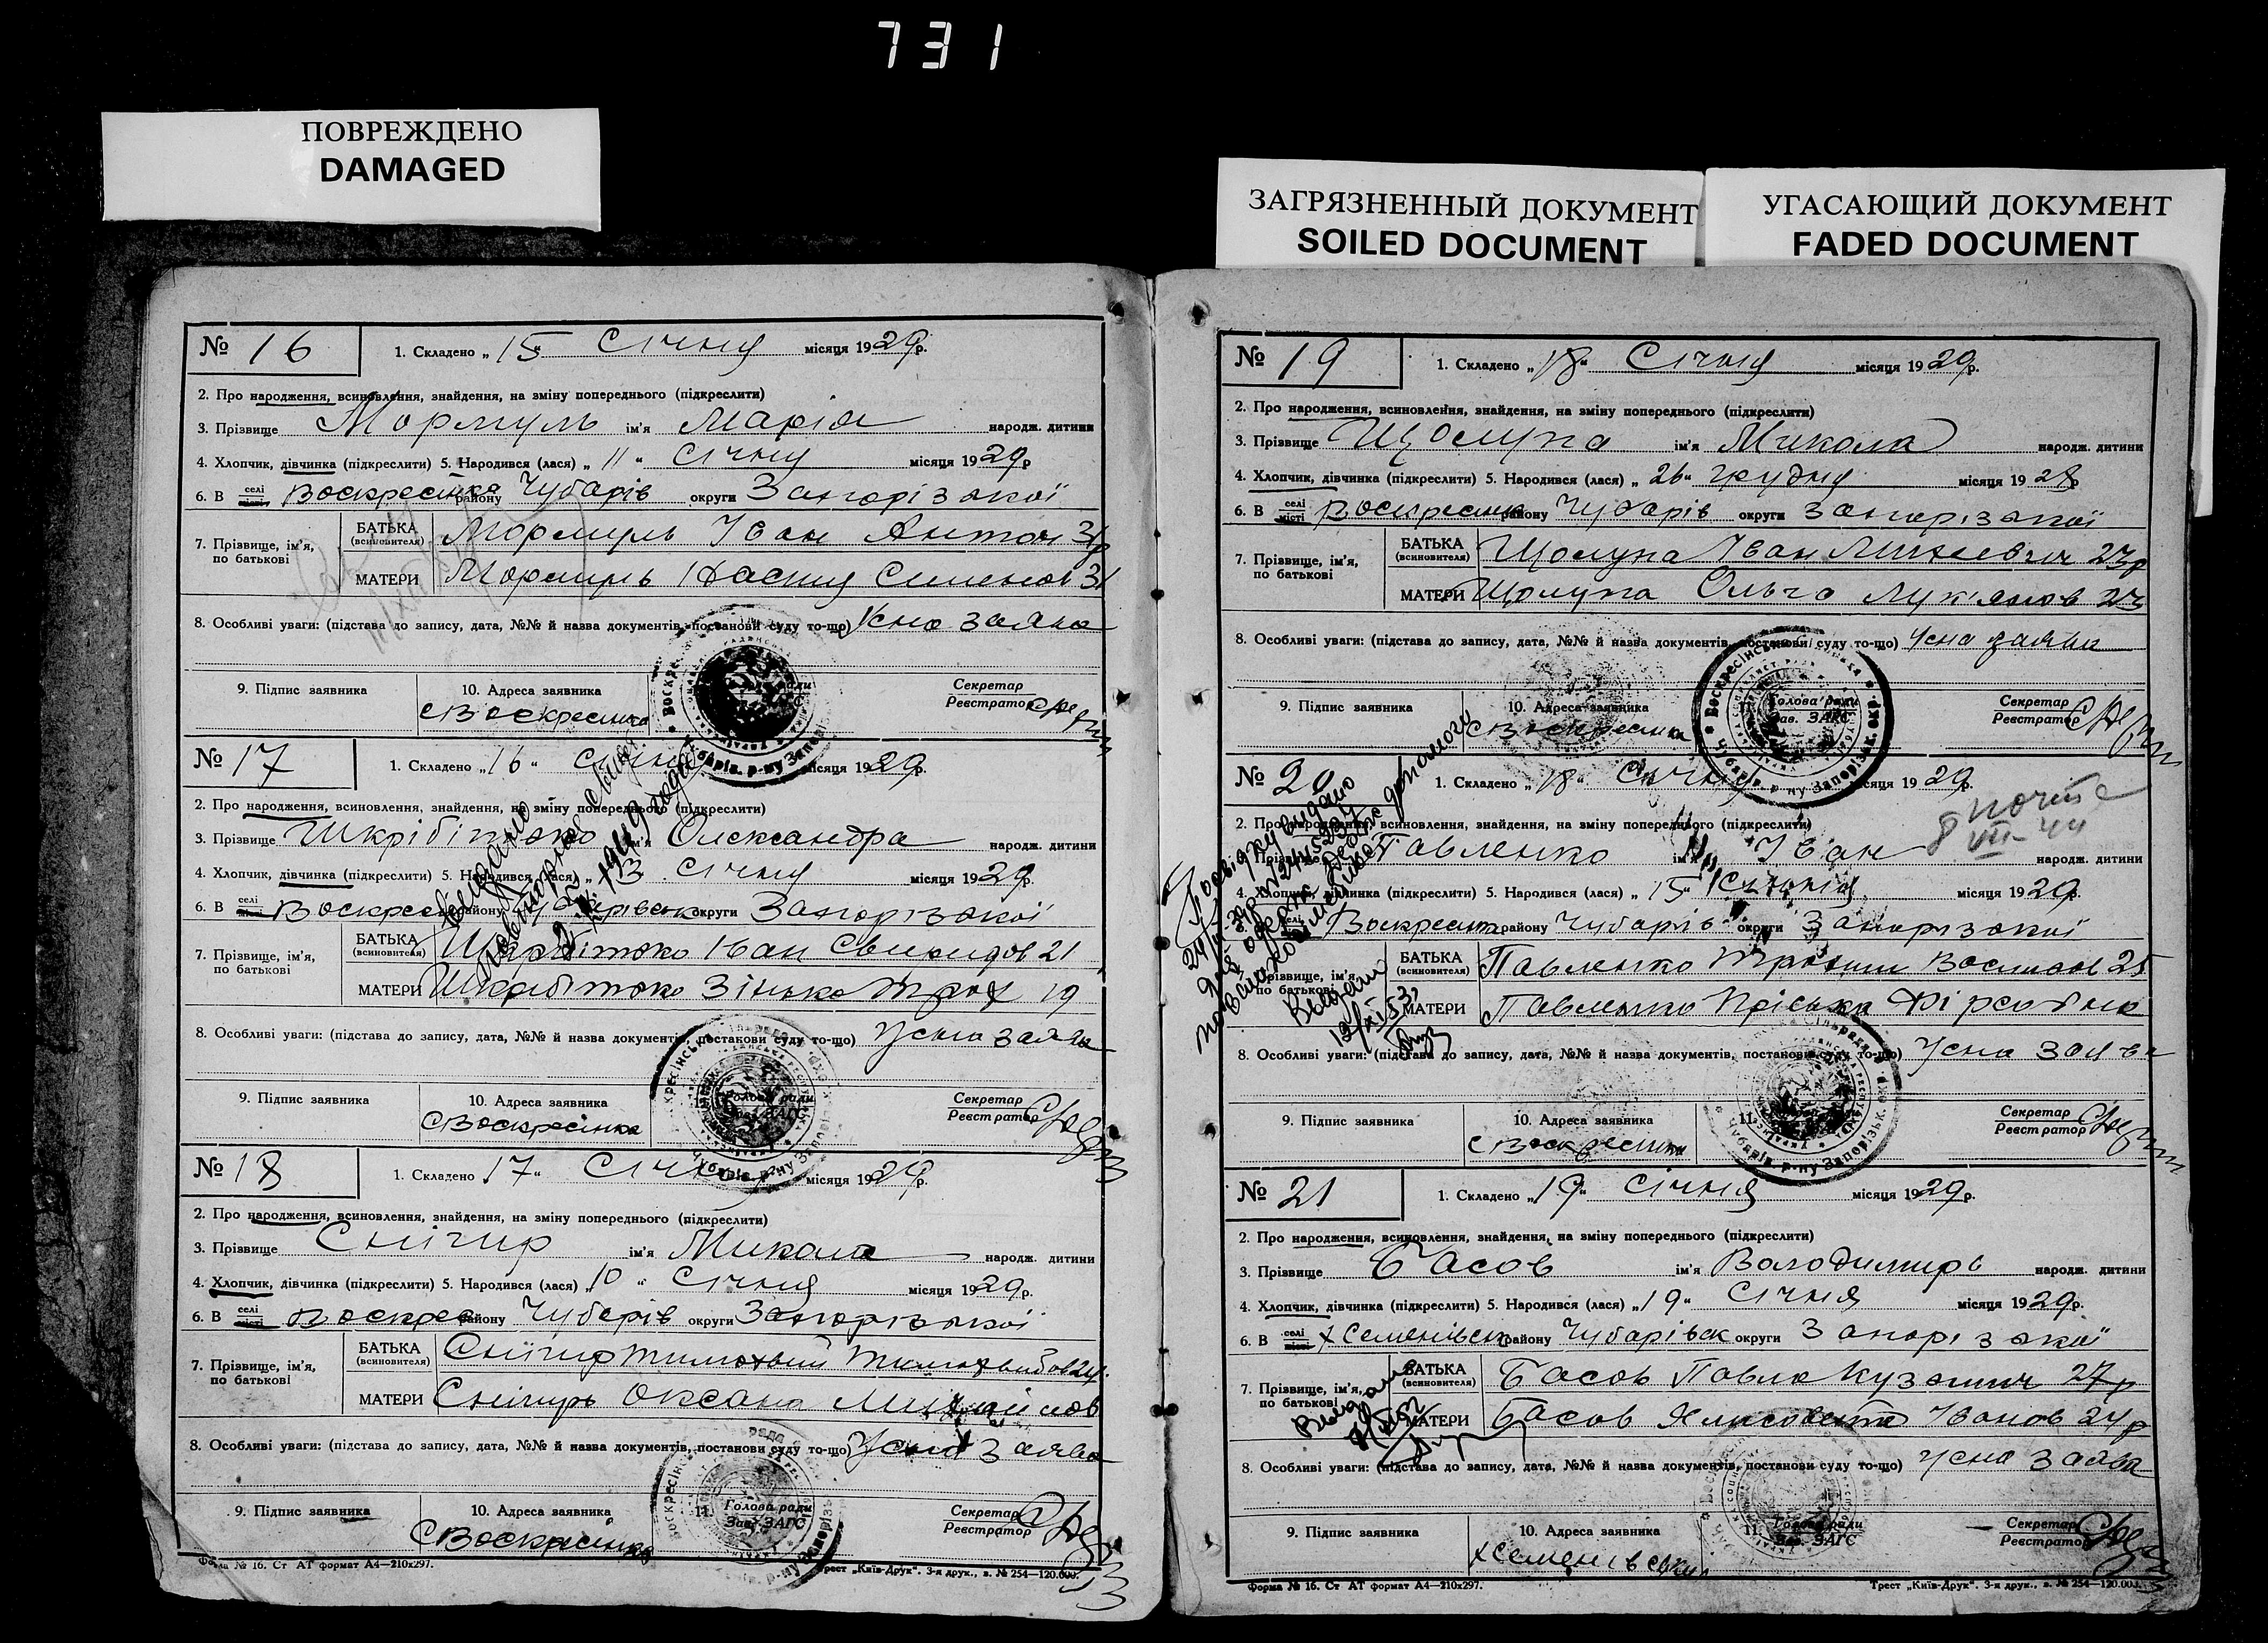 731
ПОВРЕЖДЕНО
DAMAGED
ЗАГРЯЗНЕННЫЙ ДОКУМЕНТ
SOILED DOCUMENT
УГАСАЮЩИЙ ДОКУМЕНТ
FADED DOCUMENT
№ 16 1. Складено „15" Січня місяця 1929р.
2. Про народження, всиновлення, знайдення, на зміну попереднього (підкреслити)
3. Прізвище Мормуль ім'я Марія народж. дитини
4. Хлопчик, дівчинка (підкреслити) 5. Народився (лася) „11" Січня місяця 1929р
6. В селі Воскресінка району Чубарів округи Запорізької
7. Прізвище, ім'я, по батькові
БАТЬКА (всиновителя) Мормуль Іван Антон 31р
МАТЕРИ Мормуль Настя Семенов 31
8. Особливі уваги: (підстава до запису, дата, №№ й назва документів, постанови суду то-що) Усна заява
9. Підпис заявника 10. Адреса заявника Секретар
с Воскресінка Реєстратор
№ 17 1. Складено „16" Січня місяця 1929р.
2. Про народження, всиновлення, знайдення, на зміну попереднього (підкреслити)
3. Прізвище Шкрібітько ім'я Олександра народж. дитини
4. Хлопчик, дівчинка (підкреслити) 5. Народився (лася) „13" Січня місяця 1929р.
6. В селі Воскресен району Чубарівськ округи Запорізької
7. Прізвище, ім'я, по батькові
БАТЬКА (всиновителя) Іван 21
МАТЕРИ Зінька 19
8. Особливі уваги: (підстава до запису, дата, №№ й назва документів, постанови суду то-що) Усна заява
9. Підпис заявника 10. Адреса заявника Голова ради Секретар
с Воскресінка Зав. ЗАГС Реєстратор
Видано
повторное свидет.
1949 года
№ 18 1. Складено „17" Січня місяця 1929р.
2. Про народження, всиновлення, знайдення, на зміну попереднього (підкреслити)
3. Прізвище Снігир ім'я Микола народж. дитини
4. Хлопчик, дівчинка (підкреслити) 5. Народився (лася) „10" Січня місяця 1929р.
6. В селі Воскрес району Чубарів округи Запорізької
7. Прізвище, ім'я, по батькові
БАТЬКА (всиновителя) Снігир Тимохвий Тимохвийов 24.
МАТЕРИ Снігирь Оксана Михайлов
8. Особливі уваги: (підстава до запису, дата, №№ й назва документів, постанови суду то-що) Усна заява
9. Підпис заявника 10. Адреса заявника 11. Голова ради Секретар
с Воскресінка Зав. ЗАГС Реєстратор
Форма № 16. Ст АТ формат А4—210х297. Трест „Київ-Друк". 3-я друк., з. № 254—120.000.
№ 19 1. Складено „18" Січня місяця 1929р.
2. Про народження, всиновлення, знайдення, на зміну попереднього (підкреслити)
3. Прізвище Щолупа ім'я Микола народж. дитини
4. Хлопчик, дівчинка (підкреслити) 5. Народився (лася) „26" грудня місяця 1928р
6. В селі місті Воскресінка району Чубарів округи Запорізької
7. Прізвище, ім'я, по батькові
БАТЬКА (всиновителя) Щолупа Іван 23р
МАТЕРИ Щолупа Ольга Лук'янов 23
8. Особливі уваги: (підстава до запису, дата, №№ й назва документів, постанови суду то-що) Усна заява
9. Підпис заявника 10. Адреса заявника Голова ради Секретар
с Воскресінка Зав. ЗАГС Реєстратор
№ 20 1. Складено „18" Січня місяця 1929р.
2. Про народження, всиновлення, знайдення, на зміну попереднього (підкреслити)
3. Прізвище Павленко ім'я Іван народж. дитини
4. Хлопчик, дівчинка (підкреслити) 5. Народився (лася) „15" Січня місяця 1929р.
6. В селі Воскресінка району Чубарів округи Запорізької
7. Прізвище, ім'я, по батькові
БАТЬКА (всиновителя) Павленко Трохим Василов 25
МАТЕРИ Павленко Пріська
8. Особливі уваги: (підстава до запису, дата, №№ й назва документів, постанови суду то-що) Усна заява
9. Підпис заявника 10. Адреса заявника 11. Секретар
с Воскресінка Реєстратор
Довідку видано
Видано
№ 21 1. Складено „19" Січня місяця 1929р.
2. Про народження, всиновлення, знайдення, на зміну попереднього (підкреслити)
3. Прізвище Басов ім'я Володимирь народж. дитини
4. Хлопчик, дівчинка (підкреслити) 5. Народився (лася) „19" Січня місяця 1929р.
6. В селі х Семенівськ району Чубарівск округи Запорізької
7. Прізвище, ім'я, по батькові
БАТЬКА (всиновителя) Басов Павло Кузьмич 27р
МАТЕРИ Басов Іванов 24р
8. Особливі уваги: (підстава до запису, дата, №№ й назва документів, постанови суду то-що) Усна заява
9. Підпис заявника 10. Адреса заявника 11. Голова ради Секретар
х Семенівський Зав. ЗАГС Реєстратор
Форма № 16. Ст АТ формат А4—210х297. Трест „Київ-Друк". 3-я друк., з. № 254—120.000.